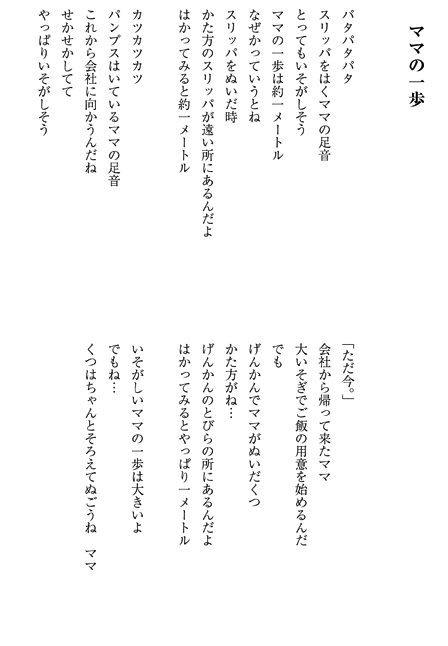 ママの一歩
パタパタパタ
スリッパをはくママの足音
とってもいそがしそう
ママの一歩は約一メートル
なぜかっていうとね
スリッパをぬいだ時
かた方のスリッパが遠い所にあるんだよ
はかってみると約一メートル
カツカツカツ
パンプスはいているママの足音
これから会社に向かうんだね
せかせかしてて
やっぱりいそがしそう
「ただ今。」
会社から帰って来たママ
大いそぎでご飯の用意を始めるんだ
でも
げんかんでママがぬいだくつ
かた方がね…
げんかんのとびらの所にあるんだよ
はかってみるとやっぱり一メートル
いそがしいママの一歩は大きいよ
でもね…
くつはちゃんとそろえてぬごうね　ママ